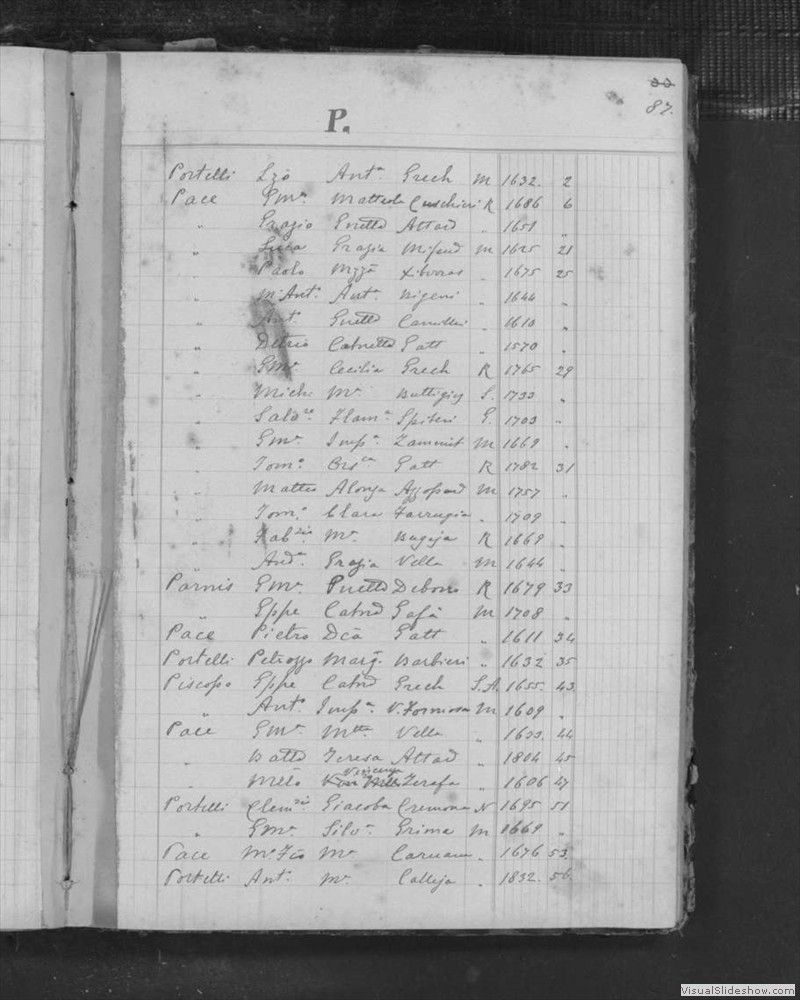 87.
P.
Portelli Lzo Ant.a Grech M 1632. 2
Pace Gm.a Matteola Cuschieri R 1686 6
" Grazio Gnetta Attard " 1651 "
" Luca Grazia Mifsud M 1625 21
" Paolo Mzzã Xiberras " 1675 25
" M.Ant.o Ant.a Bigeni " 1644 "
" Ant.o Gnetta Camilleri " 1610 "
" Catnetta Gatt " 1570 "
" Gm.a Cecilia Grech R 1765 29
" Mich. M.a Buttigieg S. 1733 "
" Salv.re Flam.a Spiteri G. 1703 "
" Gm.a Imp.a Zammit M 1669 "
" Tom.o Ors.la Gatt R 1782 31
" Matteo Alonza Azzopard M 1757 "
" Tom.o Clara Farrugia " 1709 "
" Fab.zio M.a Bugeja R 1669 "
" And.a Grazia Vella M 1644 "
Parnis Gm.a Pnetta Debono R 1679 33
" Gppe Catnd Gafà M 1708 "
Pace Pietro Dcã Gatt " 1611 34
Portelli Petrozzo Marg. Barbieri " 1632 35
Piscopo Gppe Catnd Grech S.A. 1655. 43.
" Ant.o Imp.a V.Formosa M 1609 "
Pace Gm.a M.tta Vella " 1633 44
" Batta Teresa Attard " 1804 45
" Melo Vincenza Zerafa " 1606 47
Portelli Clem.zio Giacoba Cremona N 1695 51
" Gm.a Silv.a Grima M 1669 "
Pace M.o Fco M.a Caruana " 1676 53.
Portelli Ant.o M.a Calleja " 1832. 56.
VisualSlideshow.com